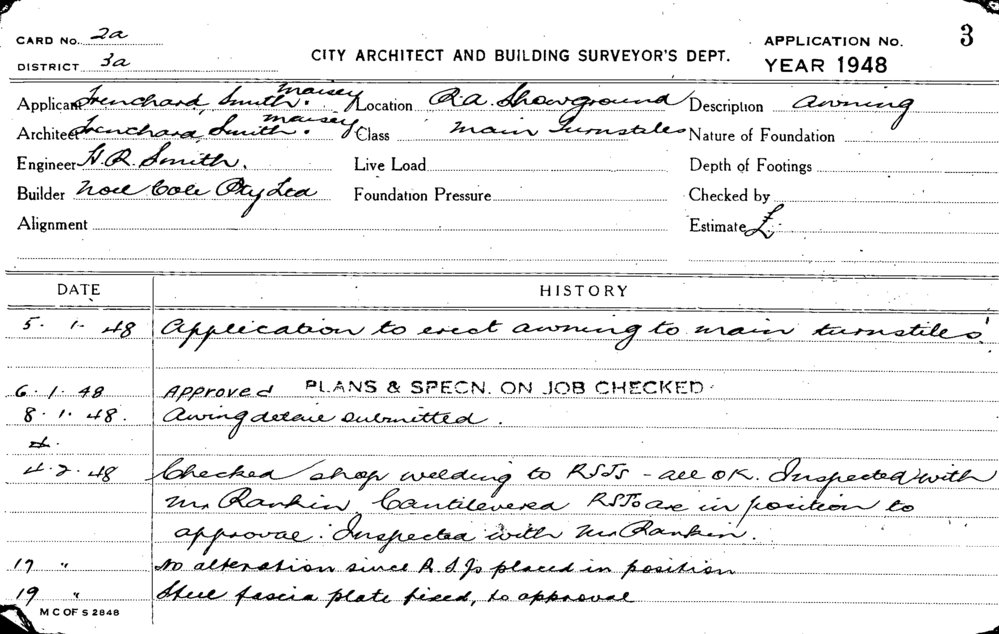 CARD No. 2a
DISTRICT 3a
CITY ARCHITECT AND BUILDING SURVEYOR'S DEPT.
APPLICATION No. 3
YEAR 1948
Applicant Trenchard, Smith. maisey Location R.a. Showground Description awning
Architect Trenchard, Smith. maisey Class main Turnstiles Nature of Foundation
Engineer H. R. Smith. Live Load Depth of Footings
Builder Noel Cole Pty Ltd Foundation Pressure Checked by
Alignment Estimate £
DATE HISTORY
5. 1. 48 Application to erect awning to main turnstiles.
6. 1. 48 Approved PLANS & SPECN. ON JOB CHECKED
8. 1. 48. Awing detail submitted.
4. 2. 48 Checked shop welding to RSJs - all OK. Inspected with
Mr Rankin Cantilevered RSJs are in position to
approval. Inspected with Mr Rankin.
17 " No alteration since R.S.Js placed in position
19 " Steel fascia plate fixed, to approval
M C OF S 2848